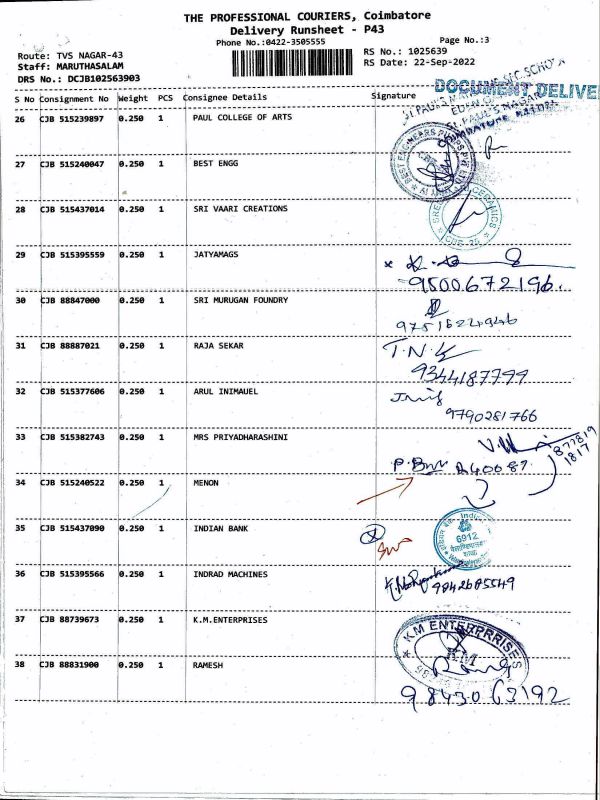 THE PROFESSIONAL COURIERS, Coimbatore
Delivery Runsheet - P43
Phone No.:0422-3505555 Page No.:3
Route: TVS NAGAR-43 RS No.: 1025639
Staff: MARUTHASALAM RS Date: 22-Sep-2022
DRS No.: DCJB102563903
DOCUMENT DELIVE
S No Consignment No Weight PCS Consignee Details Signature
26 CJB 515239897 0.250 1 PAUL COLLEGE OF ARTS
27 CJB 515240047 0.250 1 BEST ENGG
BEST ENGINEERS PUMPS PVT LTD
28 CJB 515437014 0.250 1 SRI VAARI CREATIONS
CERAMICS
CBE-25
29 CJB 515395559 0.250 1 JATYAMAGS
9500672196.
30 CJB 88847000 0.250 1 SRI MURUGAN FOUNDRY
31 CJB 88887021 0.250 1 RAJA SEKAR
T.N.
9344187799
32 CJB 515377606 0.250 1 ARUL INIMAUEL
9790281766
33 CJB 515382743 0.250 1 MRS PRIYADHARASHINI
34 CJB 515240522 0.250 1 MENON
35 CJB 515437090 0.250 1 INDIAN BANK
6912
36 CJB 515395566 0.250 1 INDRAD MACHINES
9842685549
37 CJB 88739673 0.250 1 K.M.ENTERPRISES
KM ENTERPRRISES
38 CJB 88831900 0.250 1 RAMESH
98430 63192